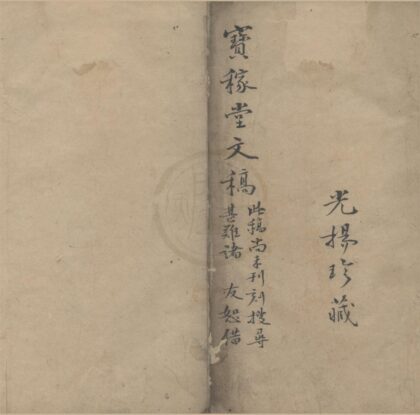 光揚珍藏
寶稼堂文稿
此稿尚未刊刻搜尋
甚難諸 友恕借